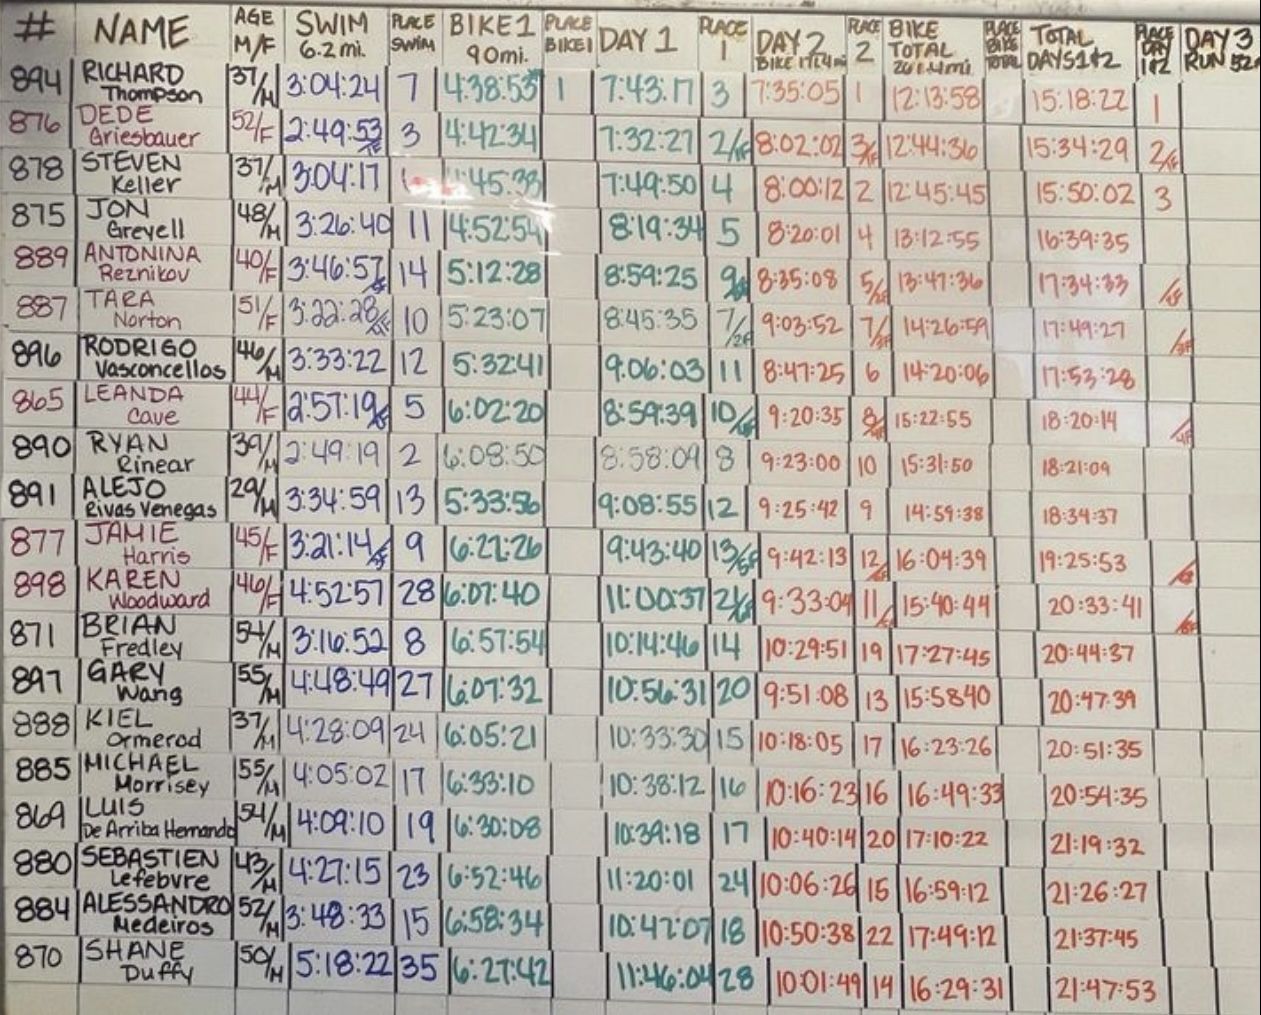 # NAME AGE M/F SWIM 6.2 mi. PLACE SWIM BIKE 1 90 mi. PLACE BIKE 1 DAY 1 PLACE 1 DAY 2 BIKE 171.4 mi PLACE 2 BIKE TOTAL 261.4 mi PLACE BIKE TOTAL TOTAL DAYS 1+2 PLACE DAY 1+2 DAY 3 RUN 52
894 RICHARD Thompson 37/M 3:04:24 7 4:38:53 1 7:43:17 3 7:35:05 1 12:13:58 15:18:22 1
876 DEDE Griesbauer 52/F 2:49:53 3 4:42:34 7:32:27 2/1F 8:02:02 3/1F 12:44:36 15:34:29 2/1F
878 STEVEN Keller 37/M 3:04:17 4:45:33 7:49:50 4 8:00:12 2 12:45:45 15:50:02 3
875 JON Greyell 48/M 3:26:40 11 4:52:54 8:19:34 5 8:20:01 4 13:12:55 16:39:35
889 ANTONINA Reznikov 40/F 3:46:57 14 5:12:28 8:59:25 9 8:35:08 5/2F 13:47:36 17:34:33
887 TARA Norton 51/F 3:22:28 10 5:23:07 8:45:35 7/2F 9:03:52 7/3F 14:26:59 17:49:27 /3F
896 RODRIGO Vasconcellos 46/M 3:33:22 12 5:32:41 9:06:03 11 8:47:25 6 14:20:06 17:53:28
865 LEANDA Cave 44/F 2:57:19 5 6:02:20 8:59:39 10 9:20:35 8/4F 15:22:55 18:20:14 /4F
890 RYAN Rinear 39/M 2:49:19 2 6:08:50 8:58:09 8 9:23:00 10 15:31:50 18:21:09
891 ALEJO Rivas Venegas 29/M 3:34:59 13 5:33:56 9:08:55 12 9:25:42 9 14:59:38 18:34:37
877 JAMIE Harris 45/F 3:21:14 9 6:22:26 9:43:40 13/5F 9:42:13 12 16:04:39 19:25:53
898 KAREN Woodward 46/F 4:52:57 28 6:07:40 11:00:37 21/6F 9:33:04 11 15:40:44 20:33:41 /6F
871 BRIAN Fredley 54/M 3:16:52 8 6:57:54 10:14:46 14 10:29:51 19 17:27:45 20:44:37
897 GARY Wang 55/M 4:48:49 27 6:07:32 10:56:31 20 9:51:08 13 15:5840 20:47:39
888 KIEL Ormerod 37/M 4:28:09 24 6:05:21 10:33:30 15 10:18:05 17 16:23:26 20:51:35
885 MICHAEL Morrisey 55/M 4:05:02 17 6:33:10 10:38:12 16 10:16:23 16 16:49:33 20:54:35
869 LUIS De Arriba Hernando 54/M 4:09:10 19 6:30:08 10:39:18 17 10:40:14 20 17:10:22 21:19:32
880 SEBASTIEN Lefebvre 43/M 4:27:15 23 6:52:46 11:20:01 24 10:06:26 15 16:59:12 21:26:27
884 ALESSANDRO Medeiros 52/M 3:48:33 15 6:58:34 10:47:07 18 10:50:38 22 17:49:12 21:37:45
870 SHANE Duffy 50/M 5:18:22 35 6:27:42 11:46:04 28 10:01:49 14 16:29:31 21:47:53